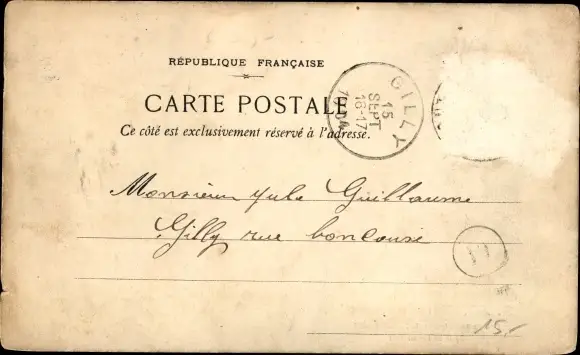 RÉPUBLIQUE FRANÇAISE
CARTE POSTALE
Ce côté est exclusivement réservé à l'adresse.
GILLY
15
SEPT
16-17
Monsieur Jule Guillaume
Gilly rue
15,-